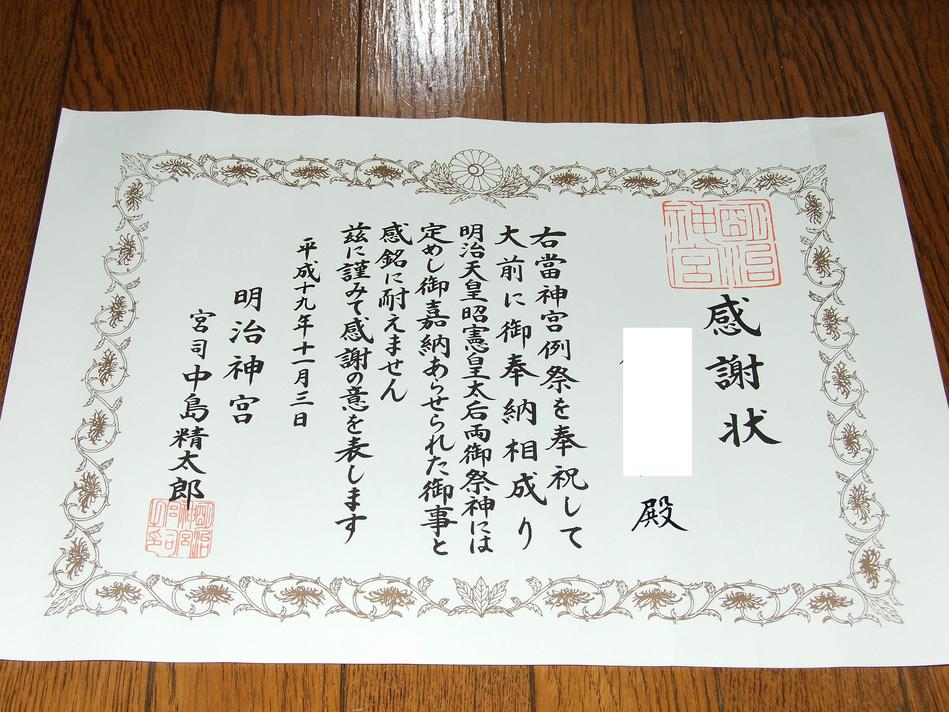 明治神宮
感謝状
殿
右當神宮例祭を奉祝して
大前に御奉納相成り
明治天皇昭憲皇太后両御祭神には
定めし御嘉納あらせられた御事と
感銘に耐えません
茲に謹みて感謝の意を表します
平成十九年十一月三日
明治神宮
宮司中島精太郎
明治神宮宮司之印